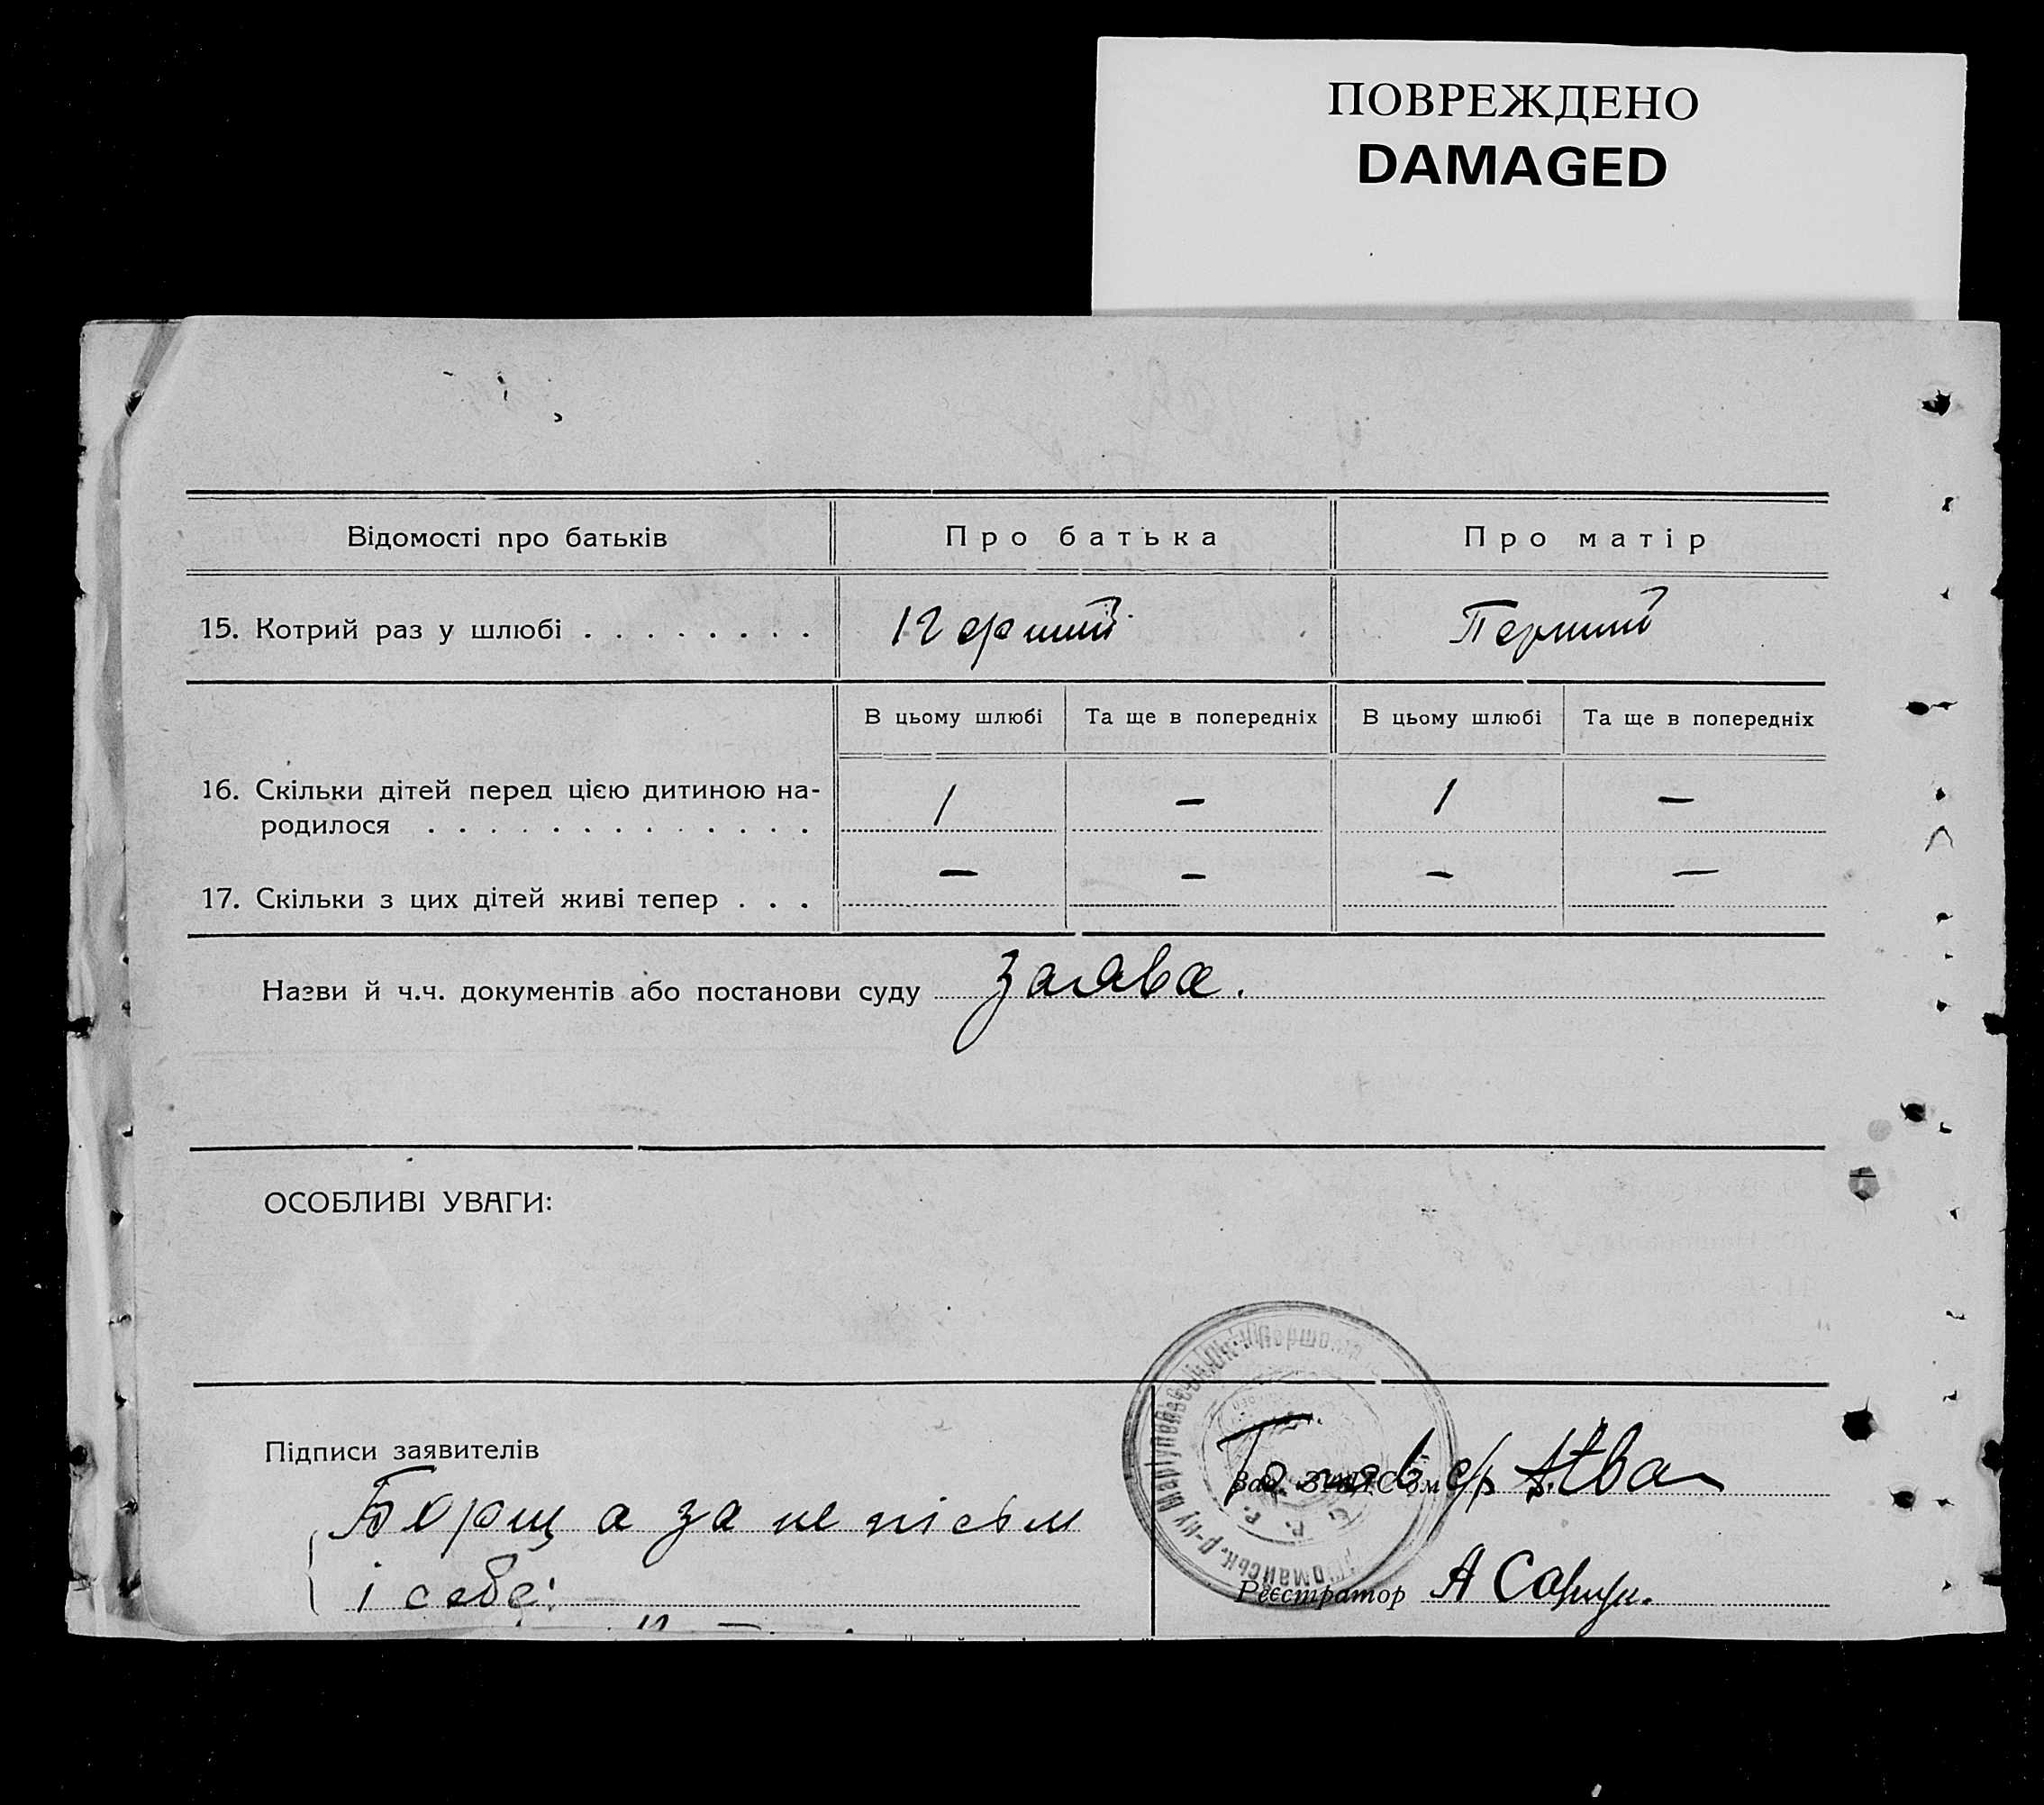 ПОВРЕЖДЕНО
DAMAGED
Відомості про батьків
Про батька
Про матір
15. Котрий раз у шлюбі . . . . . . . .
Перший
Перший
В цьому шлюбі
Та ще в попередніх
В цьому шлюбі
Та ще в попередніх
16. Скільки дітей перед цією дитиною на-
родилося . . . . . . . . . . . . .
1
—
1
—
17. Скільки з цих дітей живі тепер . . .
—
—
—
—
Назви й ч.ч. документів або постанови суду заява.
ОСОБЛИВІ УВАГИ:
Підписи заявителів
Борщ а за не писім
і себе:
Зав. ЗАГС'ом
Реєстратор А